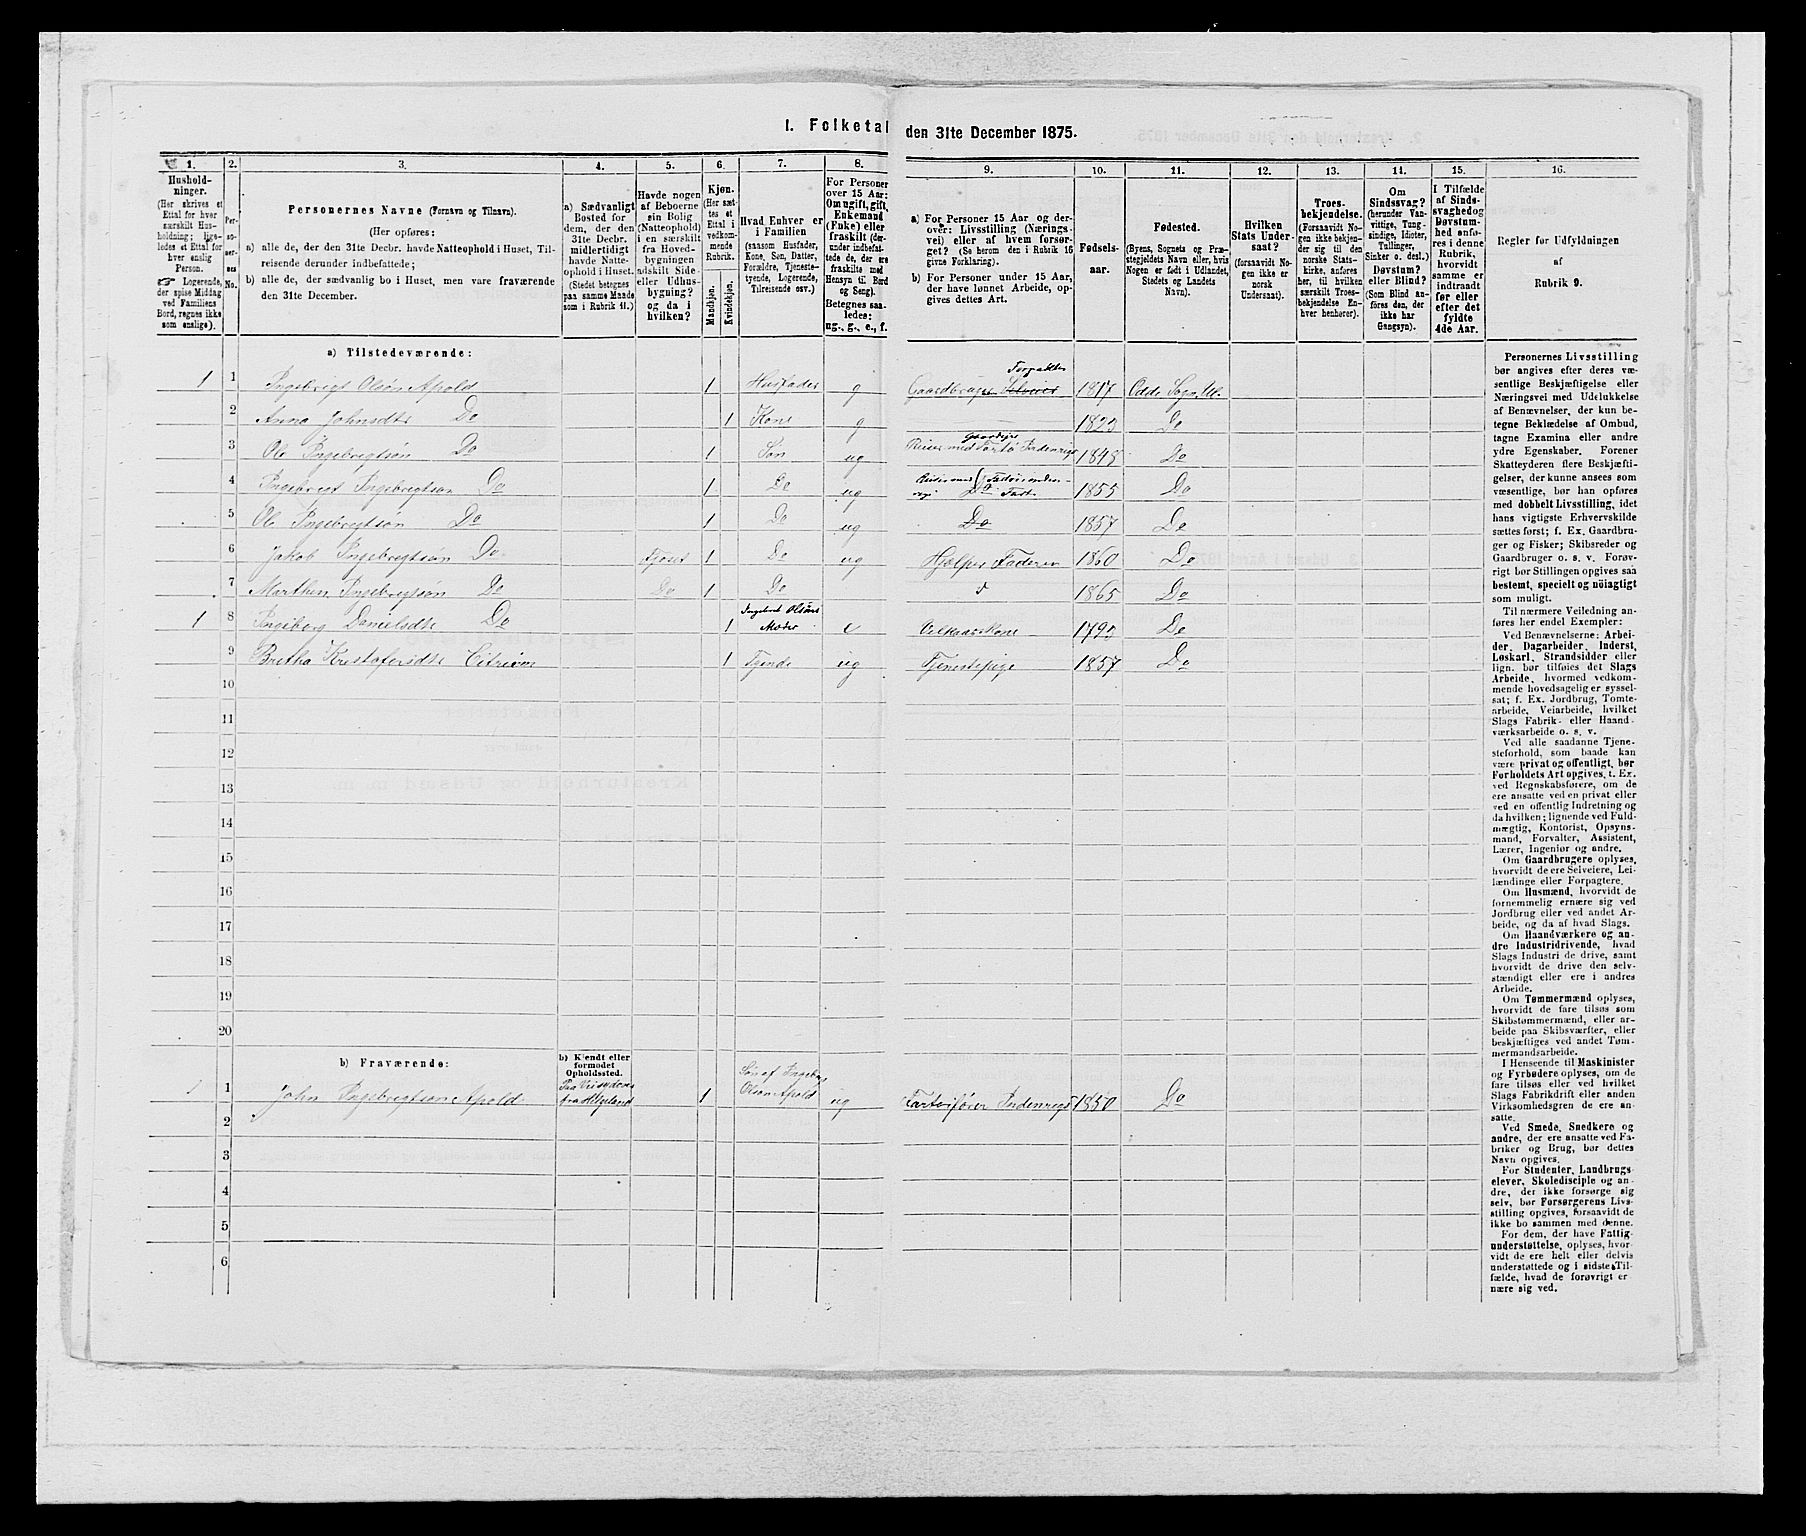 I. Folketal den 31te December 1875.
1. 2. 3. 4. 5. 6. 7. 8. 9. 10. 11. 12. 13. 14. 15. 16.
Hushold-
ninger.
(Her skrives et
Ettal for hver
særskilt Hus-
holdning; lige-
ledes et Ettal for
hver enslig
Person.
☞ Logerende,
der spise Middag
ved Familiens
Bord, regnes ikke
som enslige).
Per-
so-
ner-
nes
No.
Personernes Navne (Fornavn og Tilnavn).
(Her opføres:
a) alle de, der den 31te Decbr. havde Natteophold i Huset, Til-
reisende derunder indbefattede;
b) alle de, der sædvanlig bo i Huset, men vare fraværende
den 31te December.
a) Sædvanligt
Bosted for
dem, der den
31te Decbr.
midlertidigt
havde Natte-
ophold i Huset.
(Stedet betegnes
paa samme Maade
som i Rubrik 11.)
Havde nogen
af Beboerne
sin Bolig
(Natteophold)
i en særskilt
fra Hoved-
bygningen
adskilt Side-
eller Udhus-
bygning?
og da i
hvilken?
Kjøn.
(Her sæt-
tes et
Ettal i
vedkom-
mende
Rubrik.
Mandkjøn.
Kvindekjøn.
Hvad Enhver er
i Familien
(saasom Husfader,
Kone, Søn, Datter,
Forældre, Tjeneste-
tyende, Logerende,
Tilreisende osv.)
For Personer
over 15 Aar:
Om ugift, gift,
Enkemand
(Enke) eller
fraskilt (der-
under indbefat-
tede de, der ere
fraskilte med
Hensyn til Bord
og Seng).
Betegnes saa-
ledes:
ug., g., e., f.
a) For Personer 15 Aar og der-
over: Livsstilling (Nærings-
vei) eller af hvem forsør-
get? (Se herom den i Rubrik 16
givne Forklaring).
b) For Personer under 15 Aar,
der have lønnet Arbeide, op-
gives dettes Art.
Fødsels-
aar.
Fødested.
(Byens, Sognets og Præ-
stegjeldets Navn eller, hvis
Nogen er født i Udlandet,
Stedets og Landets
Navn).
Hvilken
Stats Under-
saat?
(forsaavidt No-
gen ikke er
norsk
Undersaat).
Troes-
bekjendelse.
(Forsaavidt No-
gen ikke bekjen-
der sig til den
norske Stats-
kirke, anføres
her, til hvilken
særskilt Troes-
bekjendelse En-
hver henhører).
Om
Sindssvag?
(herunder Van-
vittige, Tung-
sindige, Idioter,
Tullinger,
Sinker o. desl.)
Døvstum?
eller Blind?
(Som Blind an-
føres den, der
ikke har
Gangsyn).
I Tilfælde
af Sinds-
svaghed og
Døvstum-
hed anfø-
res i denne
Rubrik,
hvorvidt
samme er
indtraadt
før eller
efter det
fyldte
4de Aar.
Regler for Udfyldningen
af
Rubrik 9.
a) Tilstedeværende:
1 1 Ingebrigt Olsøn Apold 1 Husfader g Gaardbruger Selveier Forpakter 1817 Odde Sogn, Ul.
2 Anna Johnsdtr Do 1 Kone g 1823 Do
3 Ole Ingebrigtsøn Do 1 Søn ug Indenrigs 1845 Do
4 Ingebrigt Ingebrigtsøn Do 1 Do ug 1855 Do
5 Ole Ingebrigtsøn Do 1 Do ug Do 1857 Do
6 Jakob Ingebrigtsøn Do Fjoset 1 Do ug Hjælper Faderen 1860 Do
7 Marthin Ingebrigtsøn Do Do 1 Do 1865 Do
1 8 Ingiborg Danielsdtr Do 1 Ingebret Olsøns Moder e Velkaarskone 1793 Do
9 Bretha Kristofersdtr 1 Tyende ug Tjenestepige 1857 Do
10
11
12
13
14
15
16
17
18
19
20
b) Fraværende:
b) Kjendt eller
formodet
Opholdssted.
1 1 John Ingebrigtsøn Apold fra Helgeland 1 Søn af Ingebr. Olsøn Apold ug Indenrigs 1850 Do
2
3
4
5
6
Personernes Livsstilling
bør angives efter deres væ-
sentlige Beskjæftigelse eller
Næringsvei med Udelukkelse
af Benævnelser, der kun be-
tegne Beklædelse af Ombud,
tagne Examina eller andre
ydre Egenskaber. Forener
Skatteyderen flere Beskjæfti-
gelser, der kunne ansees som
væsentlige, bør han opføres
med dobbelt Livsstilling, idet
hans vigtigste Erhvervskilde
sættes først; f. Ex. Gaardbru-
ger og Fisker; Skibsreder og
Gaardbruger o. s. v. Forøv-
rigt bør Stillingen opgives saa
bestemt, specielt og nöiagtigt
som muligt.
Til nærmere Veiledning an-
føres her endel Exempler:
Ved Benævnelserne: Arbei-
der, Dagarbeider, Inderst,
Løskarl, Strandsidder eller
lign. bør tilføies det Slags
Arbeide, hvormed vedkom-
mende hovedsagelig er syssel-
sat; f. Ex. Jordbrug, Tomte-
arbeide, Veiarbeide, hvilket
Slags Fabrik- eller Haand-
værksarbeide o. s. v.
Ved alle saadanne Tjene-
steforhold, som baade kan
være privat og offentligt, bør
Forholdets Art opgives, t. Ex.
ved Regnskabsførere, om de
ere ansatte ved en privat eller
ved en offentlig Indretning og
da hvilken; lignende ved Fuld-
mægtig, Kontorist, Opsyns-
mand, Forvalter, Assistent,
Lærer, Ingeniør og andre.
Om Gaardbrugere oplyses,
hvorvidt de ere Selveiere, Lei-
lændinge eller Forpagtere.
Om Husmænd, hvorvidt de
fornemmelig ernære sig ved
Jordbrug eller ved andet Ar-
beide, og da af hvad Slags.
Om Haandværkere og an-
dre Industridrivende, hvad
Slags Industri de drive, samt
hvorvidt de drive den selv-
stændigt eller ere i andres
Arbeide.
Om Tømmermænd oplyses,
hvorvidt de fare tilsøs som
Skibstømmermænd, eller ar-
beide paa Skibsværfter, eller
beskjæftiges ved andet Tøm-
mermandsarbeide.
I Henseende til Maskinister
og Fyrbødere oplyses, om de
fare tilsøs eller ved hvilket
Slags Fabrikdrift eller anden
Virksomhedsgren de ere an-
satte.
Ved Smede, Snedkere og
andre, der ere ansatte ved Fa-
briker og Brug, bør dettes
Navn opgives.
For Studenter, Landbrugs-
elever, Skoledisciple og an-
dre, der ikke forsørge sig
selv, bør Forsørgerens Livs-
stilling opgives, forsaavidt de
ikke bo sammen med denne.
For dem, der have Fattig-
understøttelse, oplyses, hvor-
vidt de ere helt eller delvis
understøttede og i sidste Til-
fælde, hvad de forøvrigt er
nære sig ved.